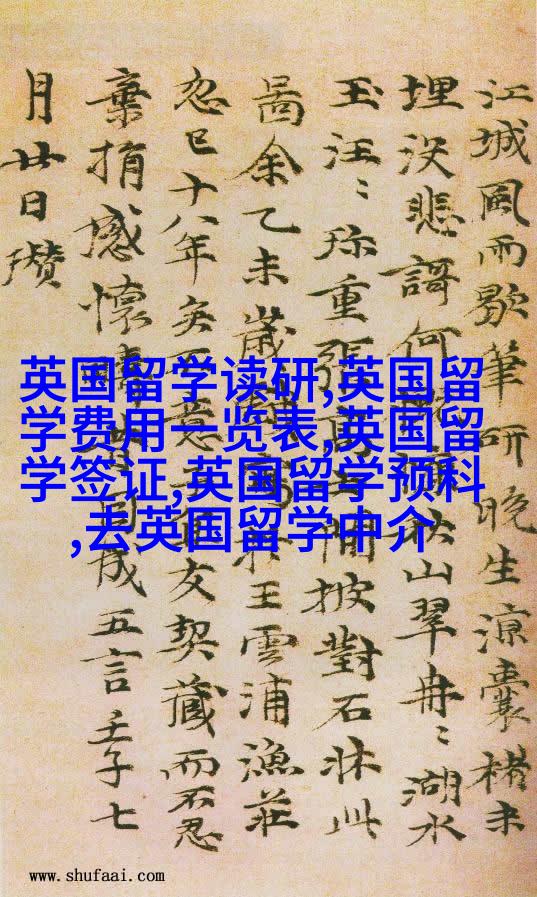 江城風雨歇筆研晚生涼囊楮未
埋没悲謌何秋山翠冉〻湖水
玉汪〻珎重張士閒披對石牀此
啚余乙未歲王雲浦漁莊
忽已十八年矣不意友契藏而不忍
棄捐感懷成五言壬子七
月廿日瓚
英国留学读研,英国留
学费用一览表,英国留
学签证,英国留学预科
,去英国留学中介
www.shufaai.com